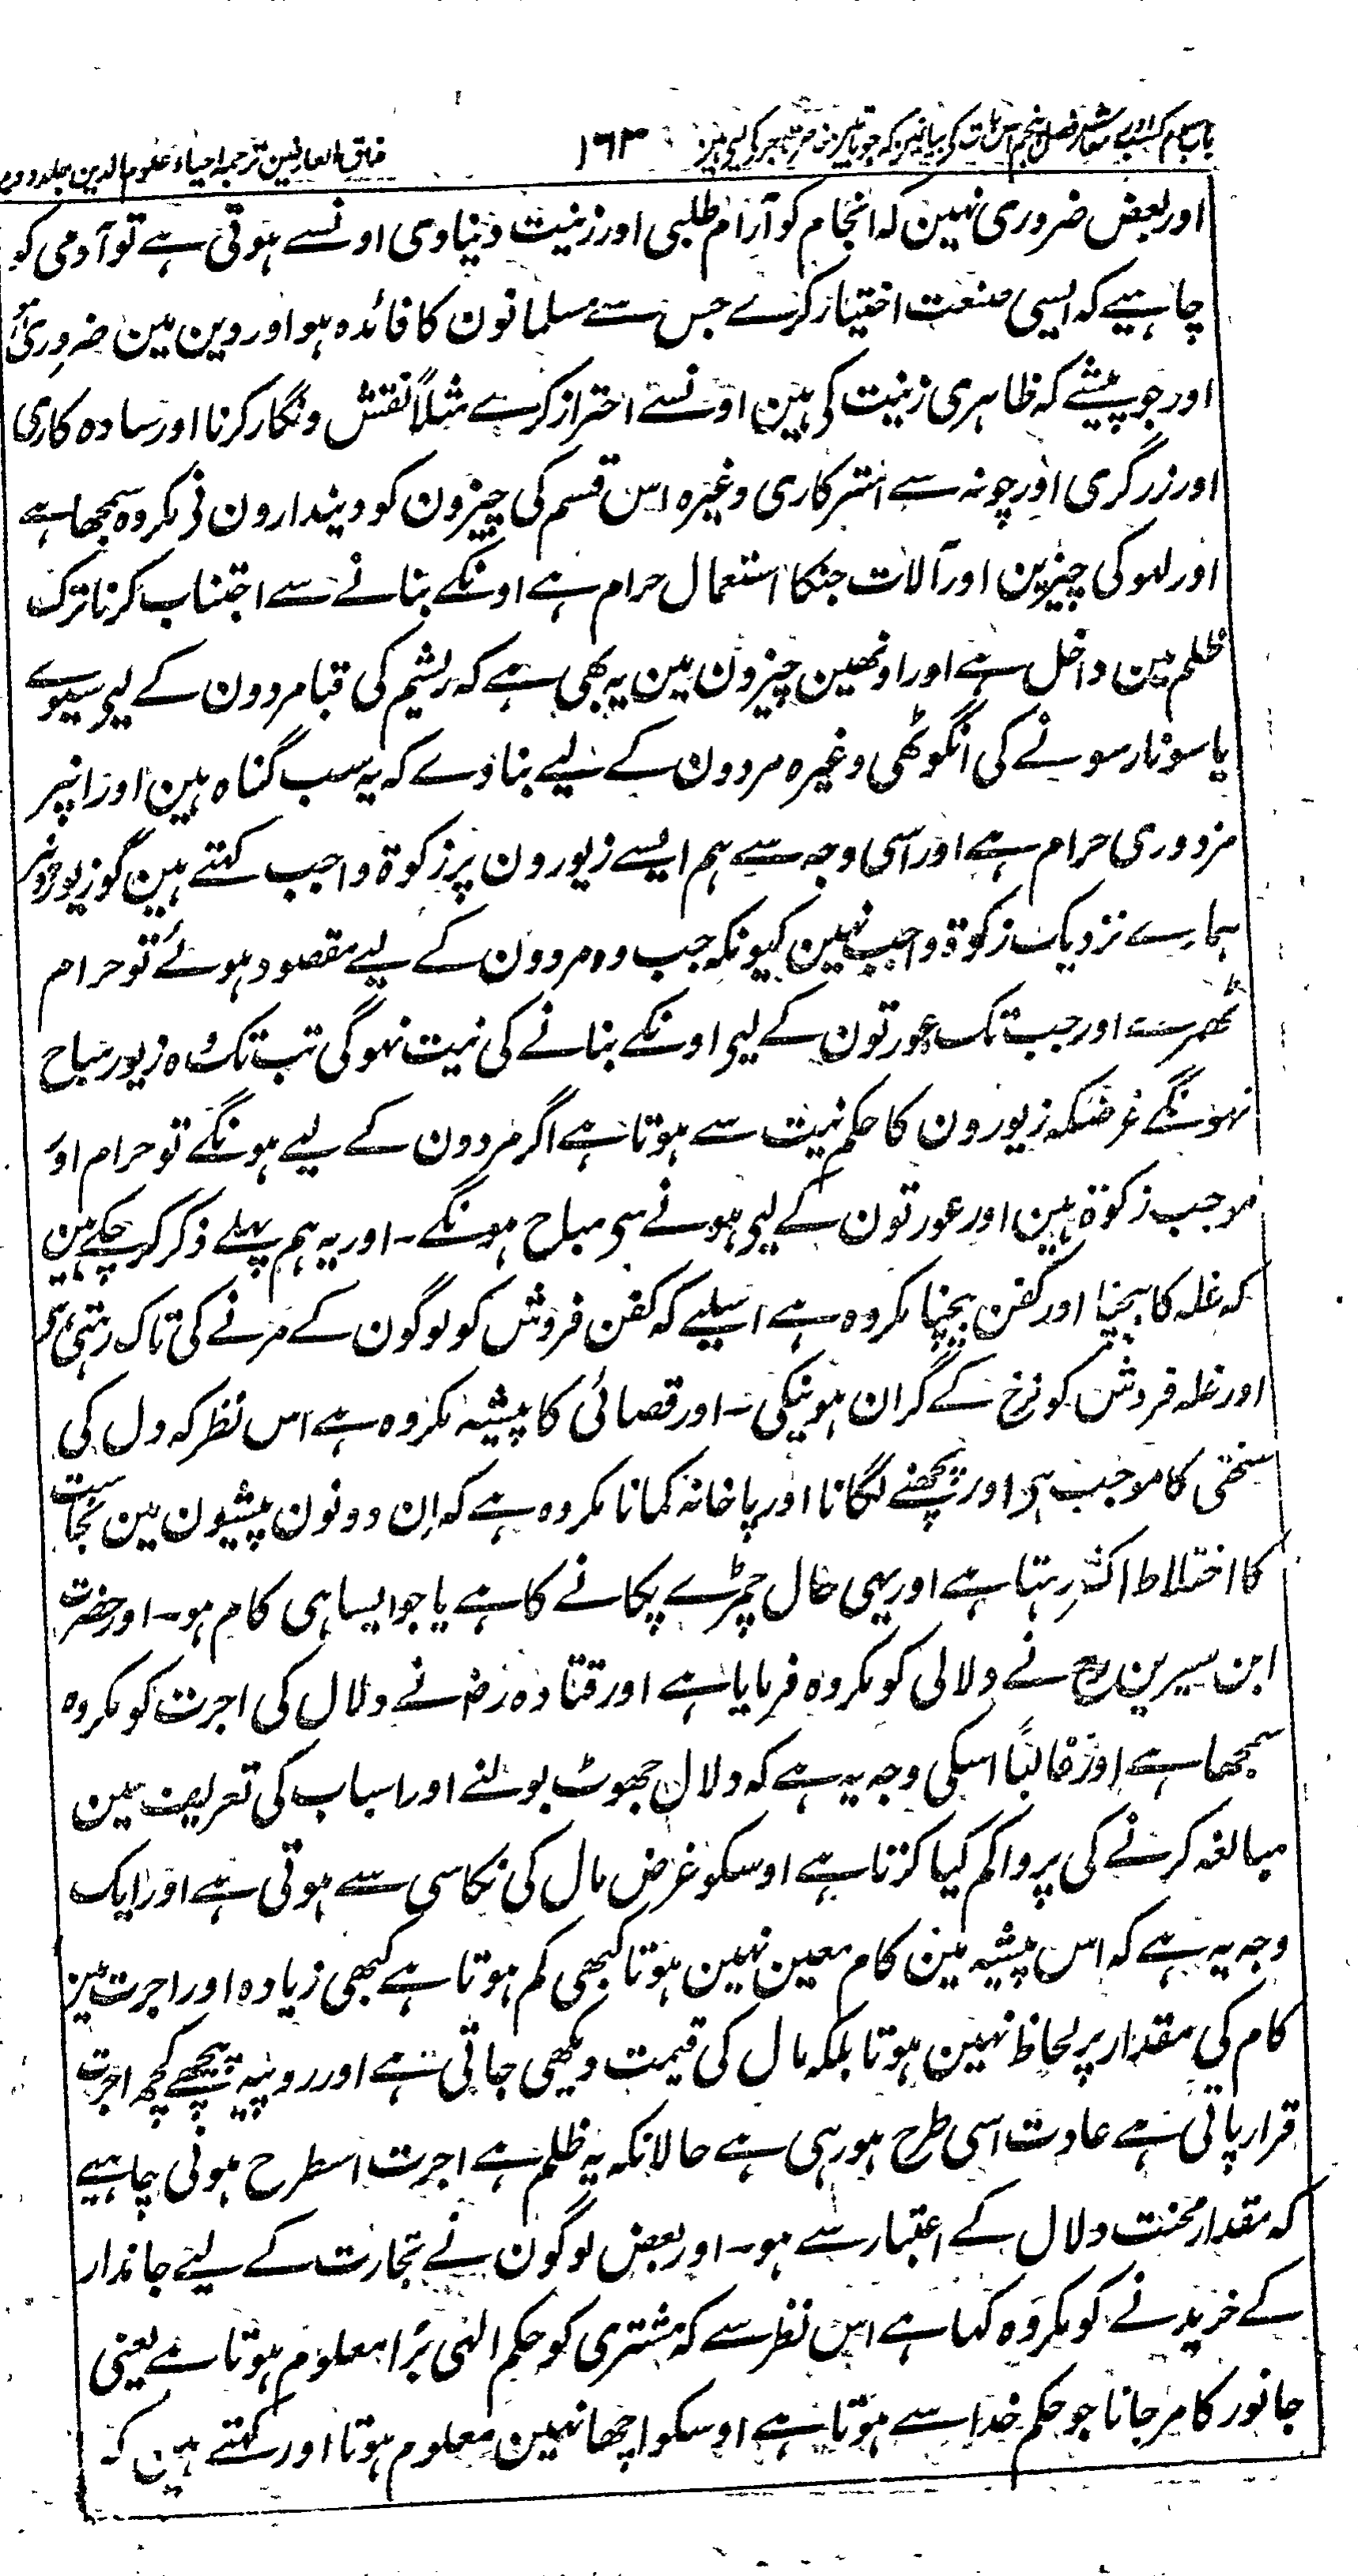 باب سوم کسب اور معاش فصل پنجم اس بات کے بیان میں کہ جو باتیں خاص تاجر کے لیے ہیں ١٦٣ مذاق العارفین ترجمہ احیاء علوم الدین جلد دوم
اور بعض ضروری نہین کہ انجام کو آرام طلبی اور زینت دنیاوی اونسے ہوتی ہے تو آدمی کو
چاہیے کہ ایسی صنعت اختیار کرے جس سے مسلمانون کا فائدہ ہو اور دین مین ضروری ہو
اور جو پیشے کہ ظاہری زینت کی ہین اونسے احتراز کرے مثلاً نقش و نگار کرنا اور سادہ کاری
اور زرگری اور چونہ سے استر کاری وغیرہ اس قسم کی چیزون کو دیندارون نے مکروہ سمجھا ہے
اور لہو کی چیزین اور آلات جنکا استعمال حرام ہے اونکے بنانے سے اجتناب کرنا ترک
ظلم مین داخل ہے اور اونھین چیزون مین یہ بھی ہے کہ ریشم کی قبا مردون کے لیے سیوے
یا سونار سونے کی انگوٹھی وغیرہ مردون کے لیے بناوے کہ یہ سب گناہ ہین اور انپر
مزدوری حرام ہے اور اسی وجہ سے ہم ایسے زیورون پر زکوۃ واجب کہتے ہین گو زیور ونپر
ہمارے نزدیک زکوۃ واجب نہین کیونکہ جب وہ مردون کے لیے مقصود ہوئے تو حرام
ٹھہرے اور جب تک عورتون کے لیے اونکے بنانے کی نیت نہوگی تب تک وہ زیور مباح
نہونگے غرضکہ زیورون کا حکم نیت سے ہوتا ہے اگر مردون کے لیے ہونگے تو حرام اور
موجب زکوۃ ہین اور عورتون کے لیے ہونے سی مباح ہونگے ۔ اور یہ ہم پہلے ذکر کر چکے ہین
کہ غلہ کا بیچنا اور کفن بیچنا مکروہ ہے اسیلیے کہ کفن فروش کو لوگون کے مرنے کی تاک رہتی ہے
اور غلہ فروش کو نرخ کے گران ہونیکی ۔ اور قصائی کا پیشہ مکروہ ہے اس نظر کہ دل کی
سختی کا موجب ہی اور پچھنے لگانا اور پاخانہ کمانا مکروہ ہے کہ ان دونون پیشیون مین نجاست
کا اختلاط اکثر رہتا ہے اور یہی حال چمڑے پکانے کا ہے یا جو ایسا ہی کام ہو ۔ اور حضرت
ابن سیرین رح نے دلالی کو مکروہ فرمایا ہے اور قتادہ رض نے دلال کی اجرت کو مکروہ
سمجھا ہے اور غالباً اسکی وجہ یہ ہے کہ دلال جھوٹ بولنے اور اسباب کی تعریف مین
مبالغہ کرنے کی پروا کم کیا کرتا ہے اوسکو غرض مال کی نکاسی سے ہوتی ہے اور ایک
وجہ یہ ہے کہ اس پیشہ مین کام معین نہین ہوتا کبھی کم ہوتا ہے کبھی زیادہ اور اجرت مین
کام کی مقدار پر لحاظ نہین ہوتا بلکہ مال کی قیمت دیکھی جاتی ہے اور روپیہ پیچھے کچھ اجرت
قرار پاتی ہے عادت اسی طرح ہو رہی ہے حالانکہ یہ ظلم ہے اجرت اسطرح ہونی چاہیے
کہ مقدار محنت دلال کے اعتبار سے ہو ۔ اور بعض لوگون نے تجارت کے لیے جاندار
کے خریدنے کو مکروہ کہا ہے اس نظر سے کہ مشتری کو حکم الٰہی برا معلوم ہوتا ہے یعنی
جانور کا مر جانا جو حکم خدا سے ہوتا ہے اوسکو اچھا نہین معلوم ہوتا اور کہتے ہین کہ